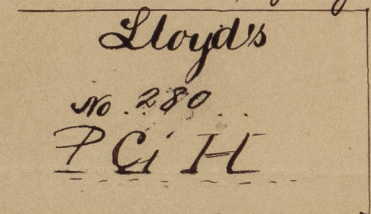 Lloyd's
No. 280.
P G H